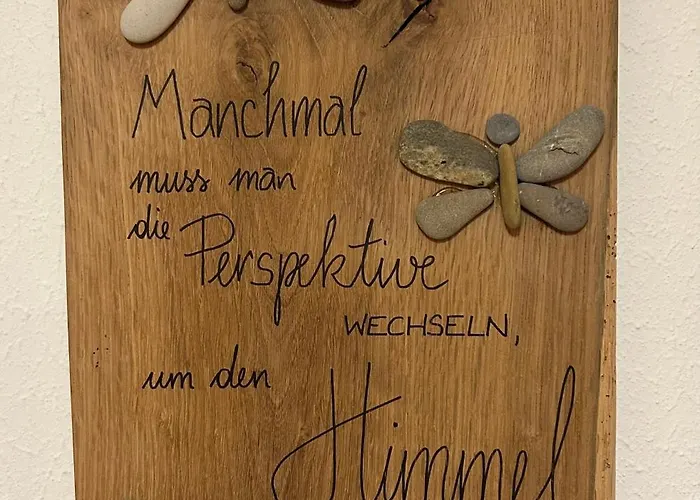 Manchmal
muss man
die Perspektive
WECHSELN,
um den
Himmel